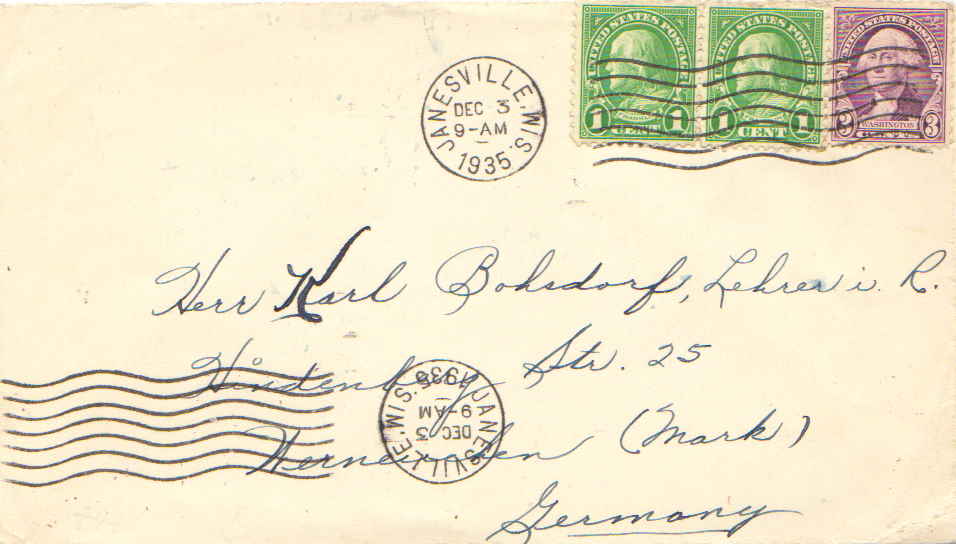 UNITED STATES POSTAGE UNITED STATES POSTAGE UNITED STATES POSTAGE
1 CENT 1 1 CENT 1 3 WASHINGTON 3
JANESVILLE, WIS.
DEC 3
9-AM
1935
Herr Karl Bohsdorf, Lehrer i. R.
Str. 25
(Mark)
Germany
JANESVILLE, WIS.
DEC 3
9-AM
1935